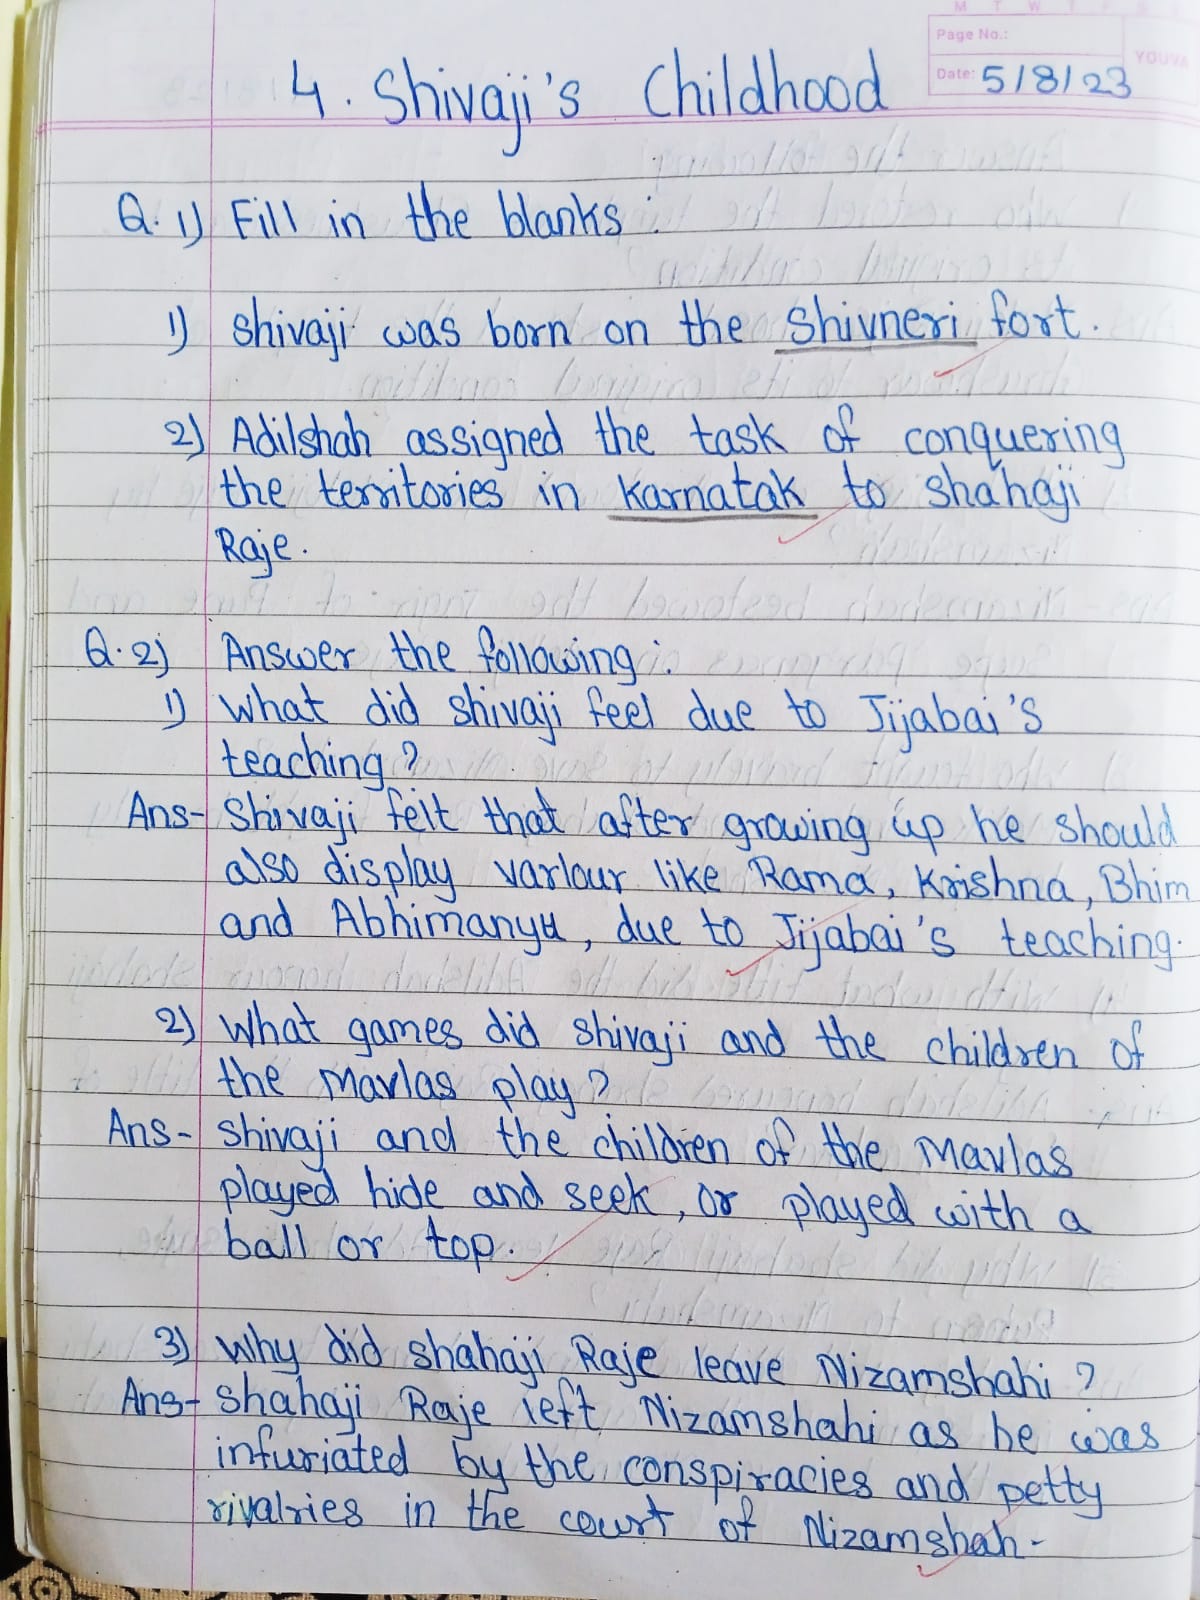 M T W T F S S
Page No.:
YOUVA
Date: 5/8/23
4. Shivaji's Childhood
Q. 1) Fill in the blanks :
1) Shivaji was born on the Shivneri fort.
2) Adilshah assigned the task of conquering
the territories in Karnatak to Shahaji
Raje.
Q.2) Answer the following :
1) What did Shivaji feel due to Jijabai's
teaching ?
Ans- Shivaji felt that after growing up he should
also display varlour like Rama, Krishna, Bhim
and Abhimanyu, due to Jijabai's teaching.
2) What games did Shivaji and the children of
the Mavlas play ?
Ans- Shivaji and the children of the Mavlas
played hide and seek, or played with a
ball or top.
3) Why did Shahaji Raje leave Nizamshahi ?
Ans- Shahaji Raje left Nizamshahi as he was
infuriated by the conspiracies and petty
rivalries in the court of Nizamshah-